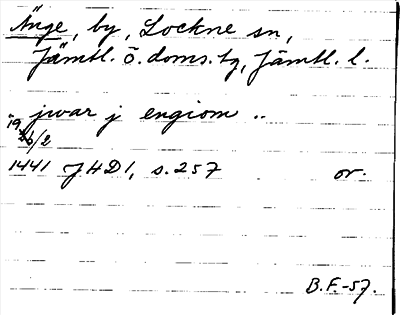 Änge, by, Lockne sn,
Jämtl. ö. doms. tg, Jämtl. l.
jwar j engiom ..
26/2
1441 JHD 1, s. 257 or.
B.F.-57.